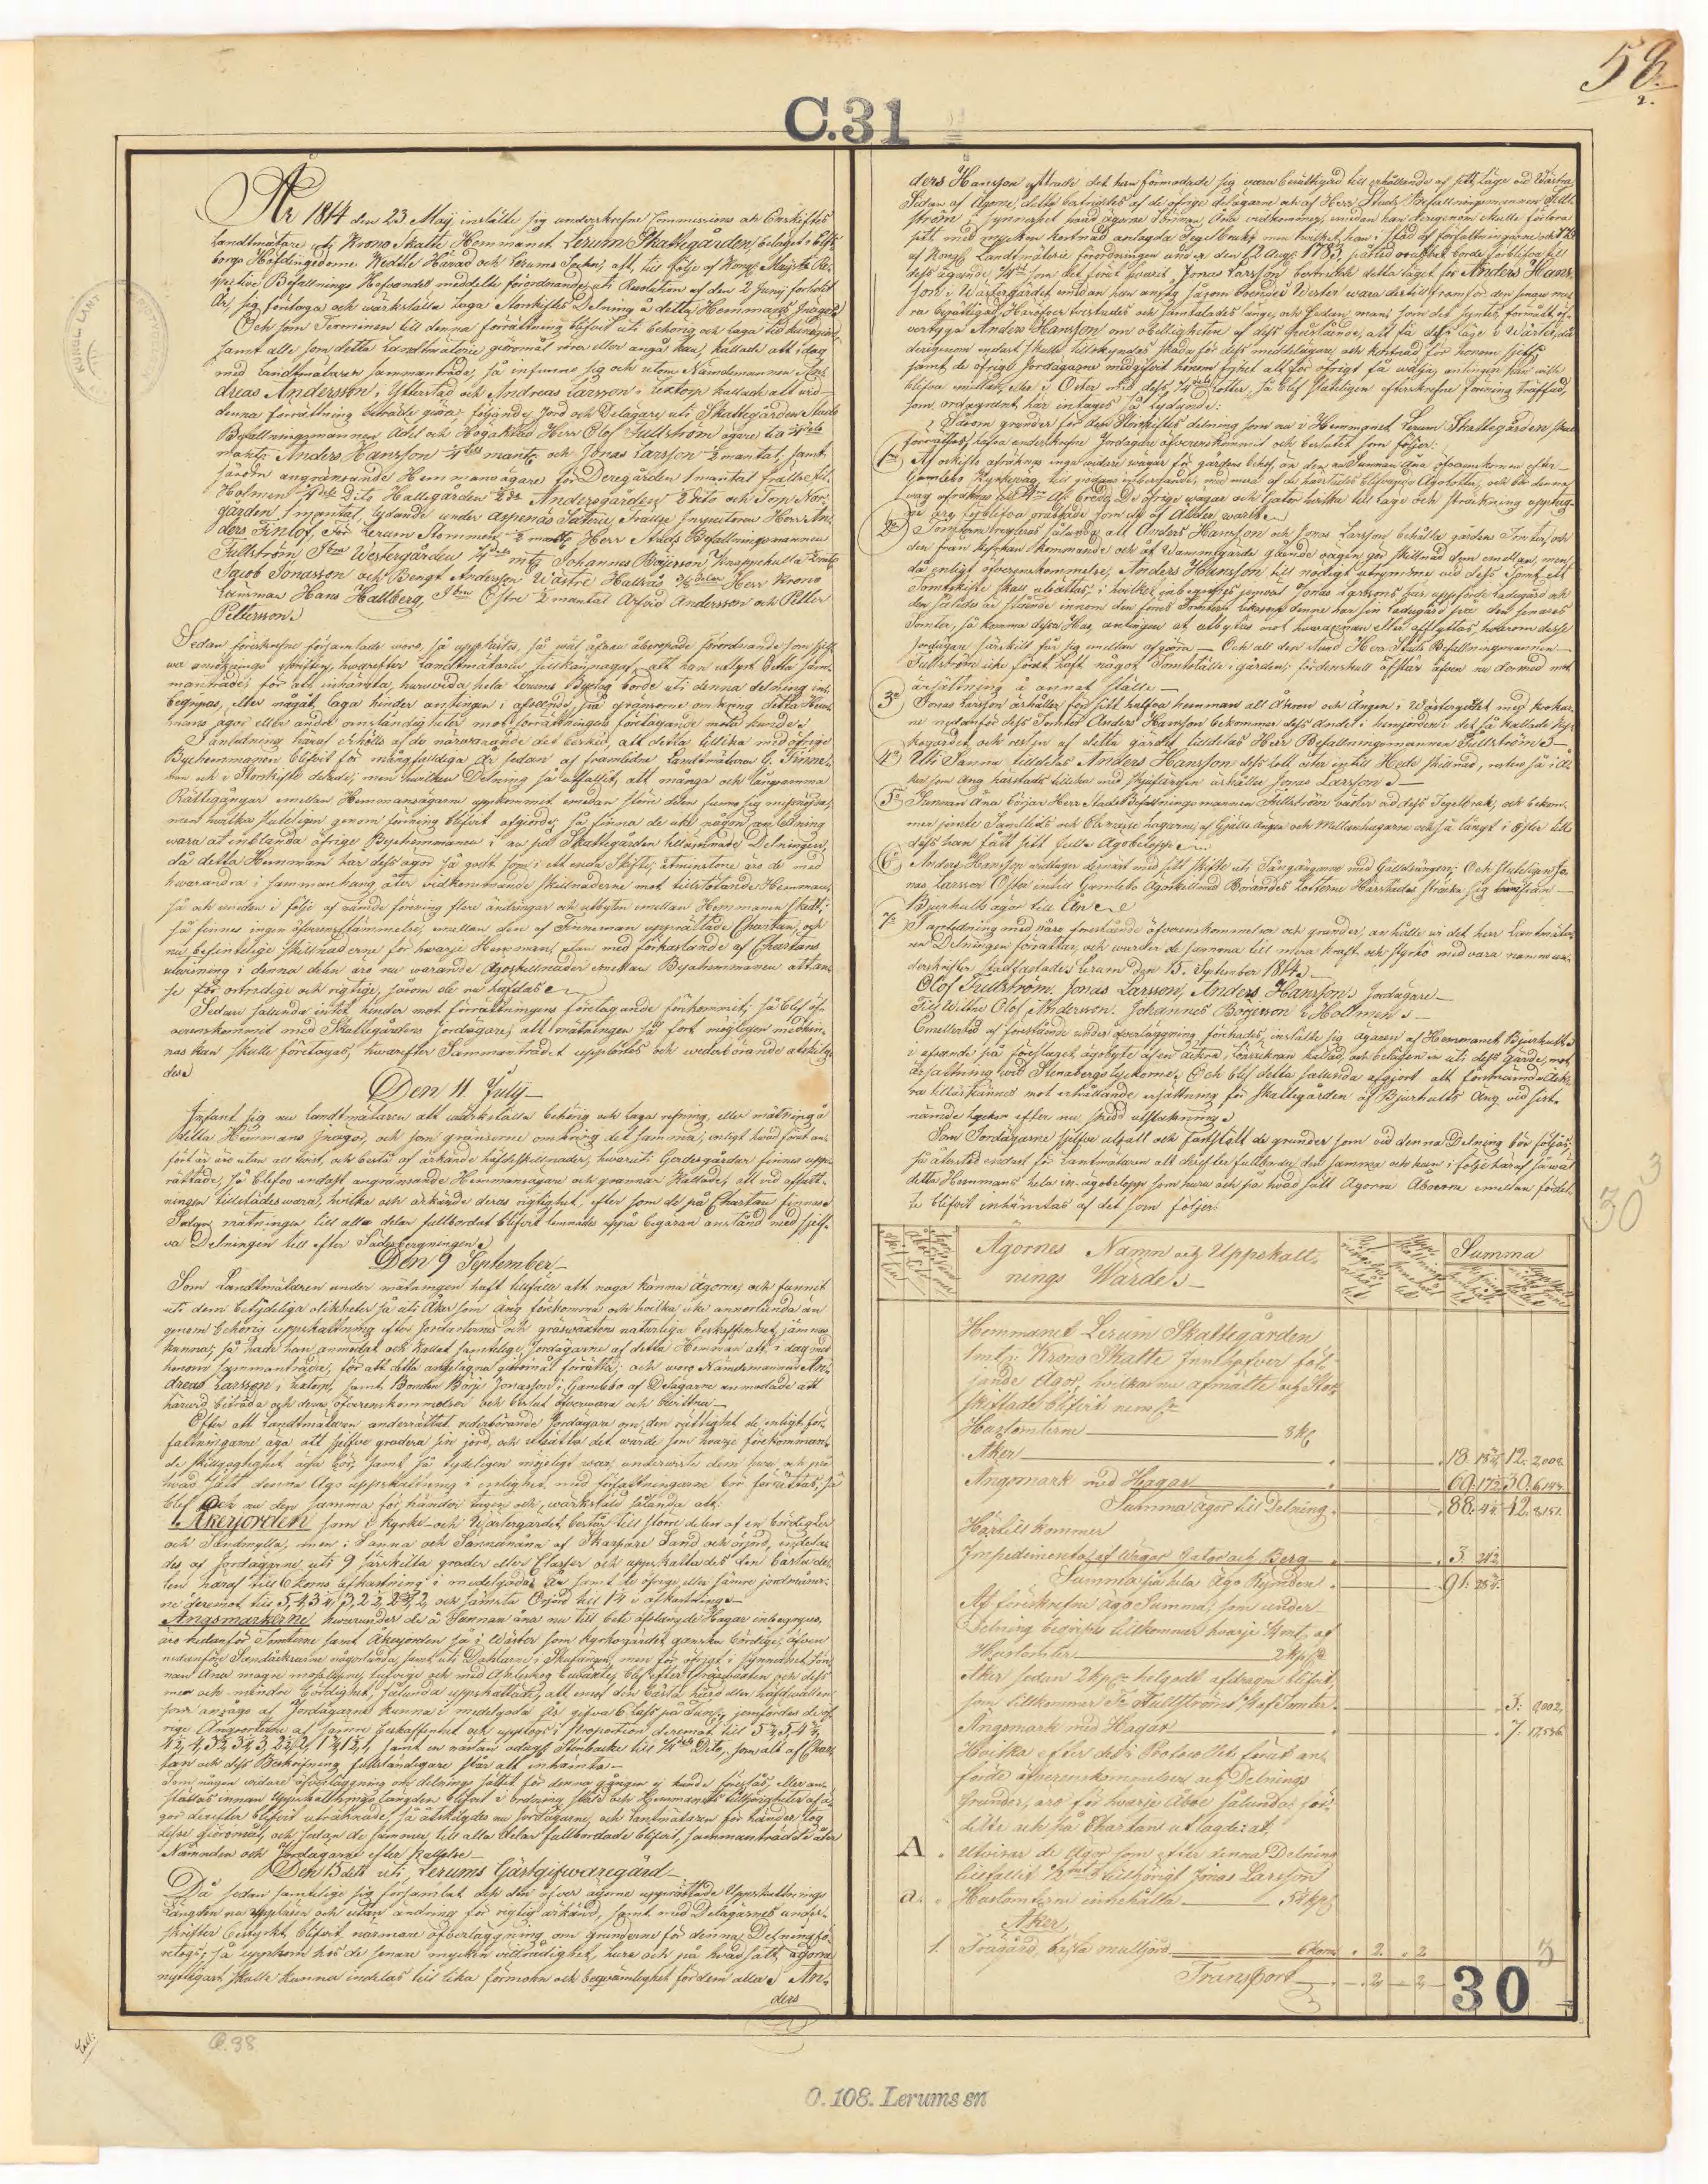 58.
2.
C.31
År 1814 den 23 Maij instälte sig underskrefne Commissions och Enskiftes
Landtmätare uti Krono Skatte Hemmanet Lerum Skattegården, belägit i Elfs-
borgs Höfdingedöme Wedtle Härad och Lerums Sochn, att, till följe af Kongl. Maijts Re-
spective Befallnings Hafvandes meddelte förordnande, uti Resolution af den 2 Junij förledit
År, sig företaga och wärkställa Laga Storskiftes Delning å detta Hemmans Inägor.
Och som Terminen till denna förrättning blifvit uti behörig och laga tid kungjord,
samt alle som detta Landtmäterie giöromål rörer eller angå kan, kallade att i dag
med Landtmätaren sammanträda, så infunno sig och utom Nämdemannen An-
dreas Andersson i Ytterstad och Andreas Larsson i Uxtorp kallade att wid
denna förrättning biträde giöra, följande Jord och Delägare uti Skattegården Stads
Befallningsmannen Ädel och Högaktad Herr Olof Fullström ägare till 1/4 dels
mantl Anders Hansson 1/4 dels mantl och Jonas Larsson 1/2 mantal, samt
såsom angränsande Hemmans ägare för Deregården 1 mantal frälse,
Holmen 1/4 del Dito Hallegården Andersgården 1/2 dito och Tom Nor-
gården 1 mantal, lydande under Aspenäs Säterie, Frälse Inspectoren Herr An-
ders Finlöf, För Lerum Stommen 1/2 mantl Herr Stads Befallningsmannen
Fullström Westergården mtl Johannes Börjesson, Knappekulla
Jacob Jonasson och Bengt Andersson Wästre Hallsås Herr Krono
Länsman Hans Hallberg, Östre 1/2 mantal Arfvid Andersson och Petter
Pettersson.
Sedan föreskrefne församlade woro, så upplästes, så wäl åfvan åberopade förordnande som sielf-
wa ansöknings skriften, hwarefter Landtmätaren tillkännagaf, att han utlyst detta sam-
manträde, för att inhämta, huruvida hela Lerums Byelag borde uti denna delning in-
begripas, eller något laga hinder antingen i afseende på gränsorne omkring detta Hem-
mans ägor eller andra omständigheter mot förrättningens företagande möta kunde.
I anledning häraf erhölls af de närwarande det beskied, att detta tillika med öfrige
Byehemmanen blifvit för mångfaldiga År sedan af framledne Landtmätaren G. Finne-
man uti Storskifte deladt, men hwilken Delning så utfallit, att många och långsamma
Rättegångar emellan Hemmansägarne uppkommit emedan större delen funno sig missnöjda,
men hwilka slutligen genom förening blifvit afgjorde, så finna de icke någon anledning
wara at inblanda öfrige Byehemmanen i nu på Skattegården tillämnade Delningen,
då detta Hemman har dess ägor så godt som i ett enda Skifte, åtminstone äro de med
hwarandra i sammanhang, åter widkommande skillnaderne mot tillstötande Hemman,
så och emedan i följe af nämde förening flere ändringar och utbyten emellan Hemmanen skedt,
så finnes ingen öfverensstämmelse, emellan den af Finneman upprättade Chartan, och
nu befintelige skillnaderne för hwarje Hemman, utan med förkastande af Chartans
utwisning i denna delen äro nu warande ägoskillnader emellan Byahemmanen att an-
se för ostridige och rigtige, såsom de nu häfdas.
Sedan sålunda intet hinder mot förrättningens företagande förekommit, så blef öf-
verenskommit med Skattegårdens Jordägare, att mätningen så fort möjeligen medhin-
nas kan skulle företagas, hwarefter Sammanträdet upplöstes och wederbörande åtskilg-
des.
Den 11 July
Infant sig nu Landtmätaren att wärkställa behörig och laga refning, eller mätning å
detta Hemmans Inägor, och som gränsorne omkring det samma, enligt hwad förut an-
fört är äro utan all twist, och bestå af ärkände häfdeskillnader, hwaruti Gerdesgårdar finnas upp-
rättade, så blefvo endast angränsande Hemmansägare och grannar Kallade, att wid afsätt-
ningen tillstädes wara, hvilka och ärkände deras rigtighet, efter som de på Chartan finnas.
Sedan mätningen till alla delar fullbordat blifvit lemnades uppå begäran anstånd med sjelf-
wa Delningen till efter Sädesbergningen.
Den 9 September.
Som Landtmätaren under mätningen haft tillfälle att noga känna ägorne, och funnit
uti dem betydeliga olikheter så uti Åker som äng förekomma och hvilka icke annorlunda än
genom behörig uppskattning efter Jordarternes och gräswäxtens naturliga beskaffenhet jämnas
kunna; så hade han anmodat och kallat samtelige Jordägarne af detta Hemman att i dag med
honom sammanträda, för att detta angelägna giöromål förrätta; och woro Nämdemannen An-
dreas Larsson i Uxtorp, samt Bonden Börje Jonasson i Gamlebo af Delägarne anmodade att
härwid biträda och deras öfverenskommelser och beslut öfverwara och bewittna.
Efter att Landtmätaren underrättat wederbörande Jordägare om den rättighet de enligt för-
fattningarne äga att sjelfve gradera sin jord, och utsätta det wärde som hwarje förekomman-
de skilljaghghet äga bör, samt så tydeligen möjeligt war, underwiste dem huru och på
hwad sätt denna Ägo uppskattning i enlighet med författningarne bör förrättas; så
blef och nu den samma för händer tagen och wärkstäld sålunda att:
Åkerjorden som i Kyrko- och Wästergärdet, består till större delen af en bördig Ler
och Sandmylla, men i Sanna och Sannånäna af Skarpare Sand och örjord, indela-
des af Jordägarne uti 9 särskilta grader eller Classer och uppskattades den bästa de-
len häraf till 6 korns afkastning i medelgoda År samt de öfrige, eller sämre jordmåner-
ne deremot till 5, 4, 3 1/2, 3, 2 1/2, 2 1/4, 2, och sämsta Örjord till 1 1/2 i afkastning.
Ängsmarkerne hwarunder de å Sunnan åna nu till bete afstängde Hagar inbegripas,
äro nedanför Tomterne samt Åkerjorden så i Wäster som Kyrkogärdet ganska bördige, äfven
nedanföre Sandåkrarne någorlunda, samt uti Dahlarne i Skafängen, men för öfrigt i synnerhet Sun-
nan Åna magre mossländige, tufvige och med Ahleskog bewäxte, blef efter Gräswäxten och dess
mer och mindre bördighet, sålunda uppskattade, att emot den bästa hård eller häfdwallen
som ansågs af Jordägarne kunna i medelgoda År gifva 6 Lass på Tunl. jemfördes de öf-
rige Ängsorterne af sämre beskaffenhet och upptogs i Proportion deremot till 5 1/2, 5, 4 3/4,
4 1/2, 4, 3 3/4, 3 1/2, 3, 2 1/2, 2, 1 3/4, 1 1/2, 1, samt en nästan oduglig Stenbacke till 1/4 dels Dito, som alt af Char-
tan och dess Beskrifning fullständigare står att inhämta.
Som någon widare öfverläggning om delnings sättet för denna gången ej kunde företas, eller an-
ställas innan Uppskattnings Längden blifvit i ordning stäld och Hemmanets tillhörigheter af ä-
gor derefter blifvit uträknade, så åtskilgdes nu Jordägarne, och Lantmätaren för händer tog
desse giöromål, och sedan de samma till alla delar fullbordade blifvit, sammanträdde åter
Nämnden och Jordägarne efter Kallelse.
Den 15 dito uti Lerums Gästgifwaregård.
Då sedan samtelige sig församlat och den öfver ägorne upprättade Uppskattnings
Längden nu uppläsen och utan ändring för rigtig ärkänd, samt med Delägarnes under-
skrifter bestyrkt blifvit, närmare öfverläggning om grunderne för denna Delning fö-
retogs; så uppkom hos de senare mycken villrådighet, huru och på hwad sätt ägorne
nyttigast skulle kunna indelas till lika förmohn och beqwämlighet för dem alla. An-
ders
ders Hansson yttrade det han förmodade sig vara berättigad till erhållande af sitt läge wid Wästra
Sedan af Ägorne, detta bestriddes af de öfrige delägarne och af Herr Stads Befallningsmannen Full-
ström i synnerhet hwad ägorne Sunnan Åna widkommer, medan han derigenom skulle förlora
sitt med mycken kostnad anlagda Tegelbruk, men hwilket han i stöd af författningarne
af Kongl. Landtmäterie förordningen under den 12 Aug. 1783, påstod orubbat borde förblifva till
dess ägande som det förut warit. Jonas Larsson bestridde detta läget för Anders Hans-
son i Wästergärdet, medan han ansåg såsom boende i Wester wara dertill framför den senare me-
ra berättigad. Häröfver tvistades och samtalades länge, och sedan man, som det syntes, förmått öf-
vertyga Anders Hansson om obilligheten af dess påstående, att få dess läge i Wäster, då
derigenom endast skulle tillskyndas skada för dess meddelägare, och kostnad för honom sjelf,
samt de öfrige Jordägarne medgifvit honom frihet att för öfrigt få wälja antingen han wille
blifva emellan, eller i Öster med dess 1/4 dels lotter, så blef slutligen efterskrefne förening träffad,
som ordagrant här intages så lydande:
Såsom grunder för den Storskiftes delning som nu i Hemmanet Lerum Skattegården skal
förrättas, hafva underskrefne Jordägare öfverenskommit och beslutit som följer:
1mo Af oskifto afräknas inga widare wägar för gårdens behof, än den nu Sunnan Åna öfverenskomne efter
Gamlebo Kyrkowäg till godans inberstande, med mera af de härstädes blifvande Ägolotter, och bör denna
wäg afräknas för Aln. bredd. De öfrige wägar och Gator hvilka till läge och sträckning upptag-
ne äro förblifva orubbade som de af Ålder warit.
2do Tomterne regleras sålunda att Anders Hansson och Jonas Larsson behålla gården Tomter, och
den från Kyrkan kommande och åt Wammgärde gående wägen gör skillnad dem emellan, men
då enligt öfverenskommelse, Anders Hansson till nödigt utrymme wid dess Tomt ett
Tomtskifte skall utsättas, i hvilket inbegripes jemväl Jonas Larssons hus uppförde ladugård och
den således är stående innom den förres Tomter; likasom denne har sin Ladugård på den senares
Tomter, så komma dessa Hus antingen at utbytas mot hwarannan eller afflyttas, hwarom desse
Jordägare särskilt får sig emellan afgöra. Och all den stund Herr Stads Befallningsmannen
Fullström icke förut haft något Tomtställe i gården, fördenskull afstår äfven nu dermed mot
ärsättning å annat ställe.
3o Jonas Larsson erhåller för sitt halfva hemman all Åkren och Ängen i Wästergärdet med krokar-
ne nedanför dess Tomter Anders Hansson bekommer dess Andel i hemjorden i det så kallade Kyr-
kogärdet och resten af detta gärdet tilldelas Herr Befallningsmannen Fullström.
4o Uti Sanna tilldelas Anders Hansson dess lott öster intill Hede skilnad, resten så i Å-
ker som Äng härstädes tillika med Skjutarefen ärhåller Jonas Larsson.
5o Sunnan Åna börjar Herr Stads Befallnings mannen Fullström wäster ad dess Tegelbruk, och bekom-
mer jemte Sandlids och Olsmässe hagarne, af Gjälls ängen och Mellanhagarne och så långt i Öster till
dess han fått sitt fulla Ägobelopp.
6o Anders Hansson widtager dernäst med sitt skifte uti Tångängarne med Galldsängen; Och slutligen Jo-
nas Larsson Öster intill Gamlebo Ägoskillnad. Börandes Lotterne Härstädes sträcka sig twärsföre
Bjurhults ägor till Ån.
7o I anledning med wåre förestående öfverenskommelser och grunder, anhålle wi det Herr Lantmäta-
ren Delningen förrättar, och warder de samma till mera kraft och styrko med wåra namn un-
derskrifter stadfästades Lerum den 15. September 1814.
Olof Fullström. Jonas Larsson, Anders Hansson. Jordägare
Till Witne Olof Andersson. Johannes Börjesson i Hollmen.
Emellertid af förestående under öfverläggning förehades, instälte sig ägaren af Hemmanet Bjurhult
i afseende på föreslaget ägobyte af en äckra, kallad, och belägen uti dess gärde, mot
ärsättning wid Stenabergs lyckorne, Och blef detta sålunda afgjort att förenämnde äck-
ra tillärkännes mot erhållande ersättning för Skattegården af Bjurhults Äng wid sist-
nämde lyckor efter nu skedd utstakning.
Som Jordägarne sjelfve utsatt och fastställt de grunder som wid denna Delning bör följas,
så återstod endast för Lantmätaren att derefter fullborda den samma och kan i följe häraf så wäl
detta Hemmans hela in-ägobelopp som huru och på hvad sätt Ägorna Åboerna emellan fördel-
te blifvit inhämtas af det som följer:
Ägornes Namn och Uppskatt-
nings Wärde.
Summa
Hemmanet Lerum Skattegården
1 mtl. Krono Skatte Innehafver föl-
jande Ägor, hvilka nu afmätte och Stor-
skiftade blifvit neml.
Hustomterne 8 kl.
Åker 18. 12. 2,008.
Ängsmark med Hagar 69. 30. 6,143.
Summa ägor till Delning 88. 42. 8,151.
Härtill kommer
Impedimenta af wägar Gator och Berg 3.
Summa på hela Ägo Rymden 91.
Af föreskrefne ägo Summa, som under
Delning begripes tillkommer hwarje 1/4 mtl. af
Hustomter 2 kpl.
Åker sedan 2 kpl. helgodt afdragne blifvit,
som tillkommer Fullströms 1/4 af Tomter 3. 9,002,
Ängsmark med Hagar 7. 17,536
Hvilka efter det i Protocollet förut an-
förde öfverenskommelser och Delnings
Grunder, äro för hwarje Åboe sålunda för-
delte och på Chartan utlagde: at,
A Utvisar de Ägor som efter denna Delning
tillfallit 1/2 mtl. tillhörigt Jonas Larsson
a. Hustomterne innehålla kpl.
Åker,
1. Trägård, bästa mulljord 6 korn 2. 2
Transport 2 2
30
3
30
3
C.38
0.108. Lerums sn